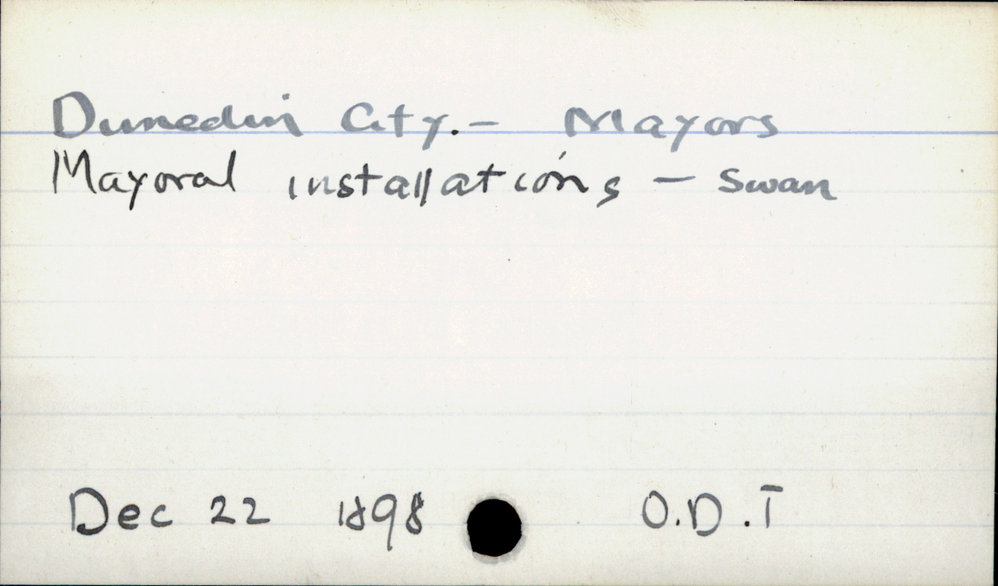 Dunedin City. - Mayors
Mayoral installations - Swan
Dec 22 1898 O.D.T